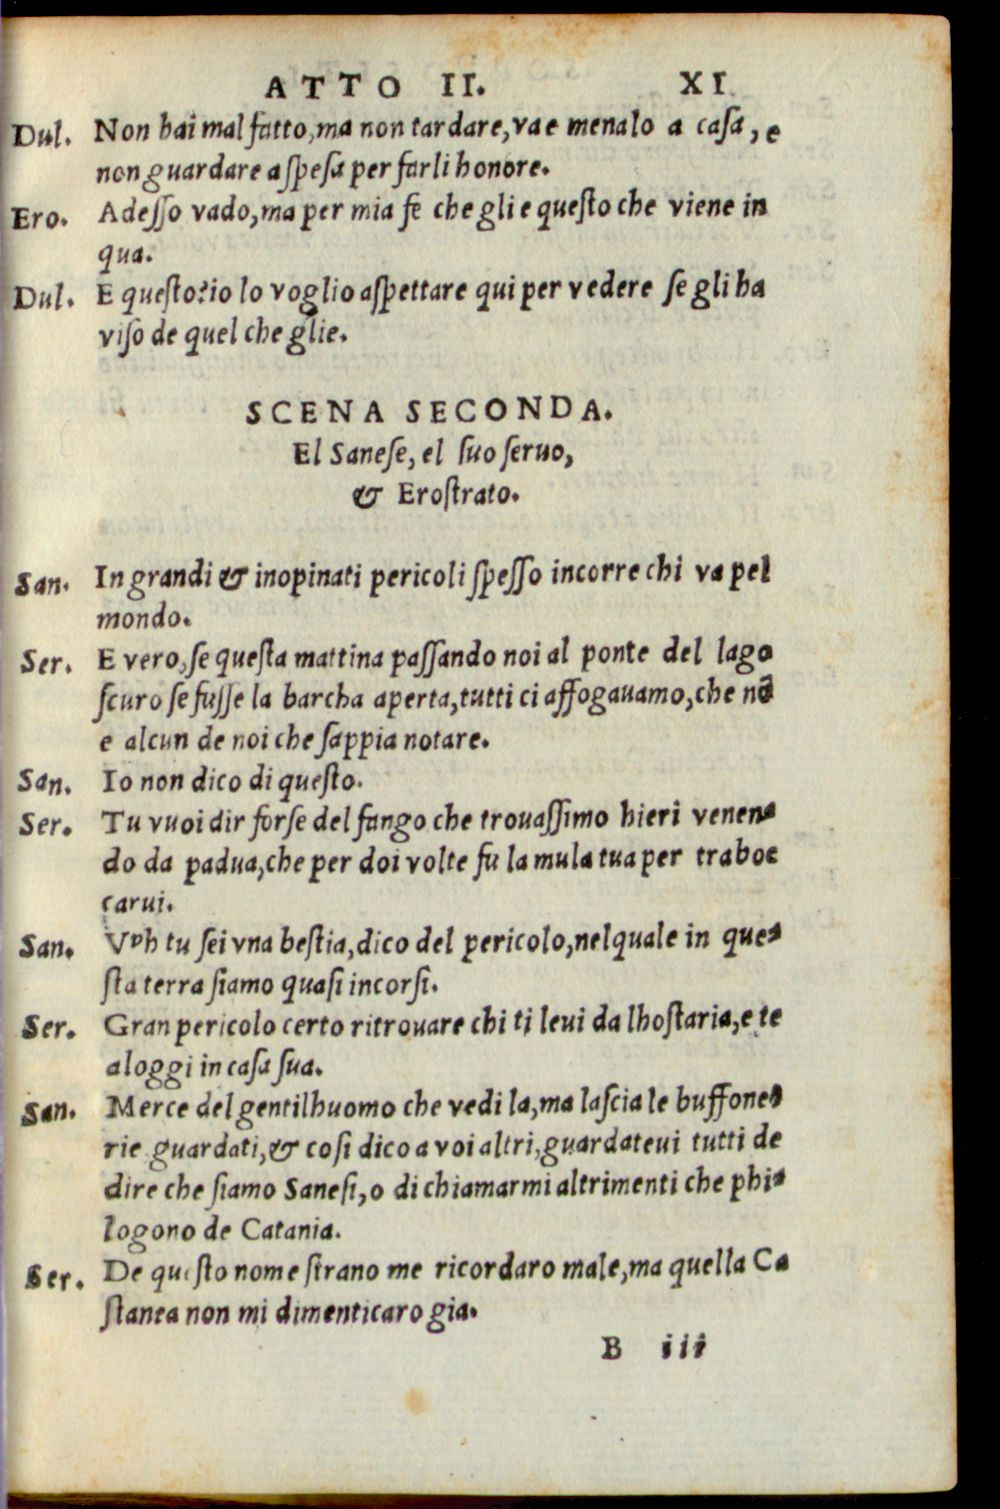 ATTO II. XI
Dul. Non hai mal fatto, ma non tardare, va e menalo a caſa, e
non guardare a ſpeſa per farli honore.
Ero. Adeſſo vado, ma per mia fe che gli e queſto che viene in
qua.
Dul. E queſto? io lo voglio aſpettare qui per vedere ſe gli ha
viſo de quel che glie.
SCENA SECONDA.
El Saneſe, el ſuo ſeruo,
& Eroſtrato.
San. In grandi & inopinati pericoli ſpeſſo incorre chi va pel
mondo.
Ser. E vero, ſe queſta mattina paſſando noi al ponte del lago
ſcuro ſe fuſſe la barcha aperta, tutti ci affogauamo, che nō
e alcun de noi che ſappia notare.
San. Io non dico di queſto.
Ser. Tu vuoi dir forſe del fango che trouaſſimo hieri venen-
do da padua, che per doi volte fu la mula tua per traboc
carui.
San. Vph tu ſei vna beſtia, dico del pericolo, nel quale in que-
ſta terra ſiamo quaſi incorſi.
Ser. Gran pericolo certo ritrouare chi ti leui da lhoſtaria, e te
aloggi in caſa ſua.
San. Merce del gentilhuomo che vedi la, ma laſcia le buffone-
rie guardati, & coſi dico a voi altri, guardateui tutti de
dire che ſiamo Saneſi, o di chiamarmi altrimenti che phi-
logono de Catania.
Ser. De queſto nome ſtrano me ricordaro male, ma quella Ca
ſtanea non mi dimenticaro gia.
B iii